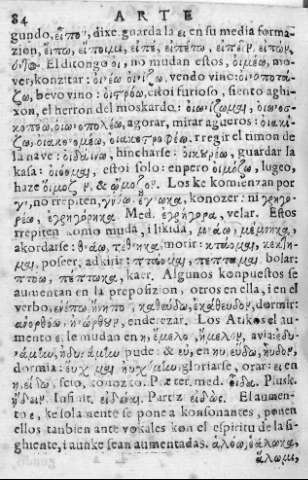 84 ARTE
gundo, εἶπον, dixe. guarda la ει en su media forma-
zion,
El ditongo οι, no mudan estos, οἰμάω, mo-
ver, konzitar: οἰνόω οἰνίζω, vendo vino: οἰνοποτά-
ζω, bevo vino: οἰστρέω, estoi furioso, siento aghi-
xon, el herron del moskardo: οἰωνίζομαι, οἰωνοσ-
κοπέω, οἰωνοπολέω, agorar, mirar agueros: οἰακί-
ζω, οἰακονομέω, οἰακοστροφέω. rregir el timon de
la nave: οἰδαίνω, hincharse: οἰκουρέω, guardar la
kasa: οἰόομαι, estoi solo: enpero οἰμώζω, lugeo,
haze Los ke komienzan por
γ, no rrepiten, γνόω, ἔγνωκα, konozer: ni γρηγο-
ρέω, ἐγρηγόρηκα Med. ἐγρήγορα, velar. Estos
rrepiten komo muda, i likida, μνάω, μέμνηκα,
akordarse: θνάω, τέθνηκα, morir: κτάομαι, κέκτη-
μαι, poseer, adkirir: πτάομαι, πέπταμαι, bolar:
πτόω, πέπτωκα, kaer. Algunos konpuestos se
aumentan en la preposizion, otros en ella, i en el
verbo, καθεύδω, ἐκάθευδον, dormir:
ἀνορθόω, ἠνώρθουν, enderezar. Los Atikos el au-
mento ε, le mudan en η, ἔμελλον, ἤμελλον,
pude: & ευ, en ηυ, εὗδον, ηὗδον,
dormia: gloriarse, orar: ει en
η, εἴδω, seio, konozko. Præter. med. οἶδα. Plusk.
ᾔδειν. Infinit. εἰδέναι. Partiz εἰδώς. El aumen-
to ε, ke sola mente se pone a konsonantes, ponen
ellos tanbien ante vokales kon el espiritu de la si-
ghiente, i aunke sean aumentadas. ἁλόω, ἑάλωκα,
ἅλωμι,